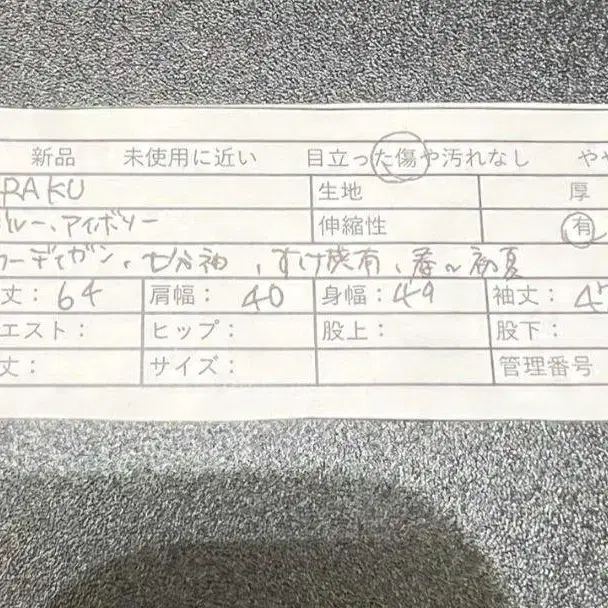 新品 未使用に近い 目立った傷や汚れなし やや
RAKU 生地 厚
ブルー、アイボリー 伸縮性 有
カーディガン、七分袖、すけ感有、春~初夏
丈: 64 肩幅: 40 身幅: 49 袖丈: 4
エスト: ヒップ: 股上: 股下:
丈: サイズ: 管理番号